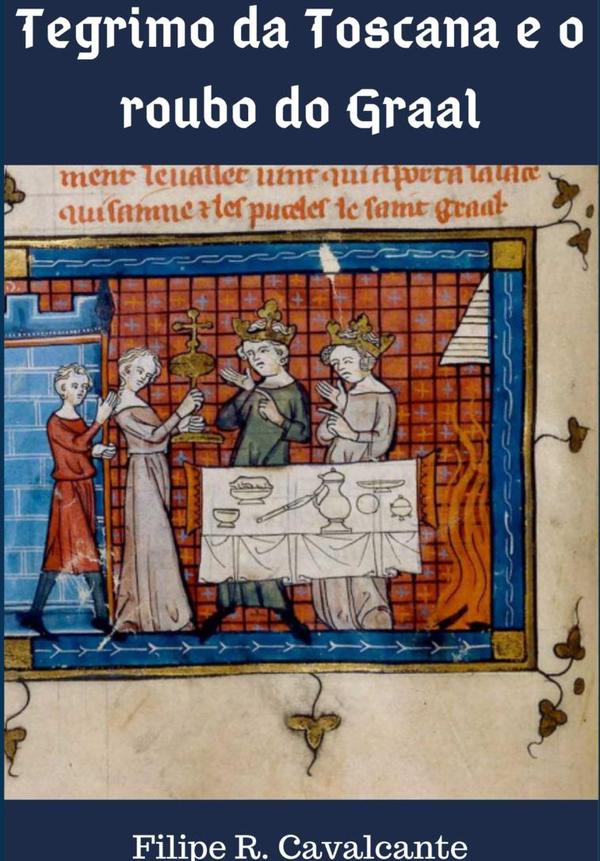 Tegrimo da Toscana e o
roubo do Graal
ment le uallet vint qui aporta la lance
qui sainne & les puceles le saint graal
Filipe R. Cavalcante